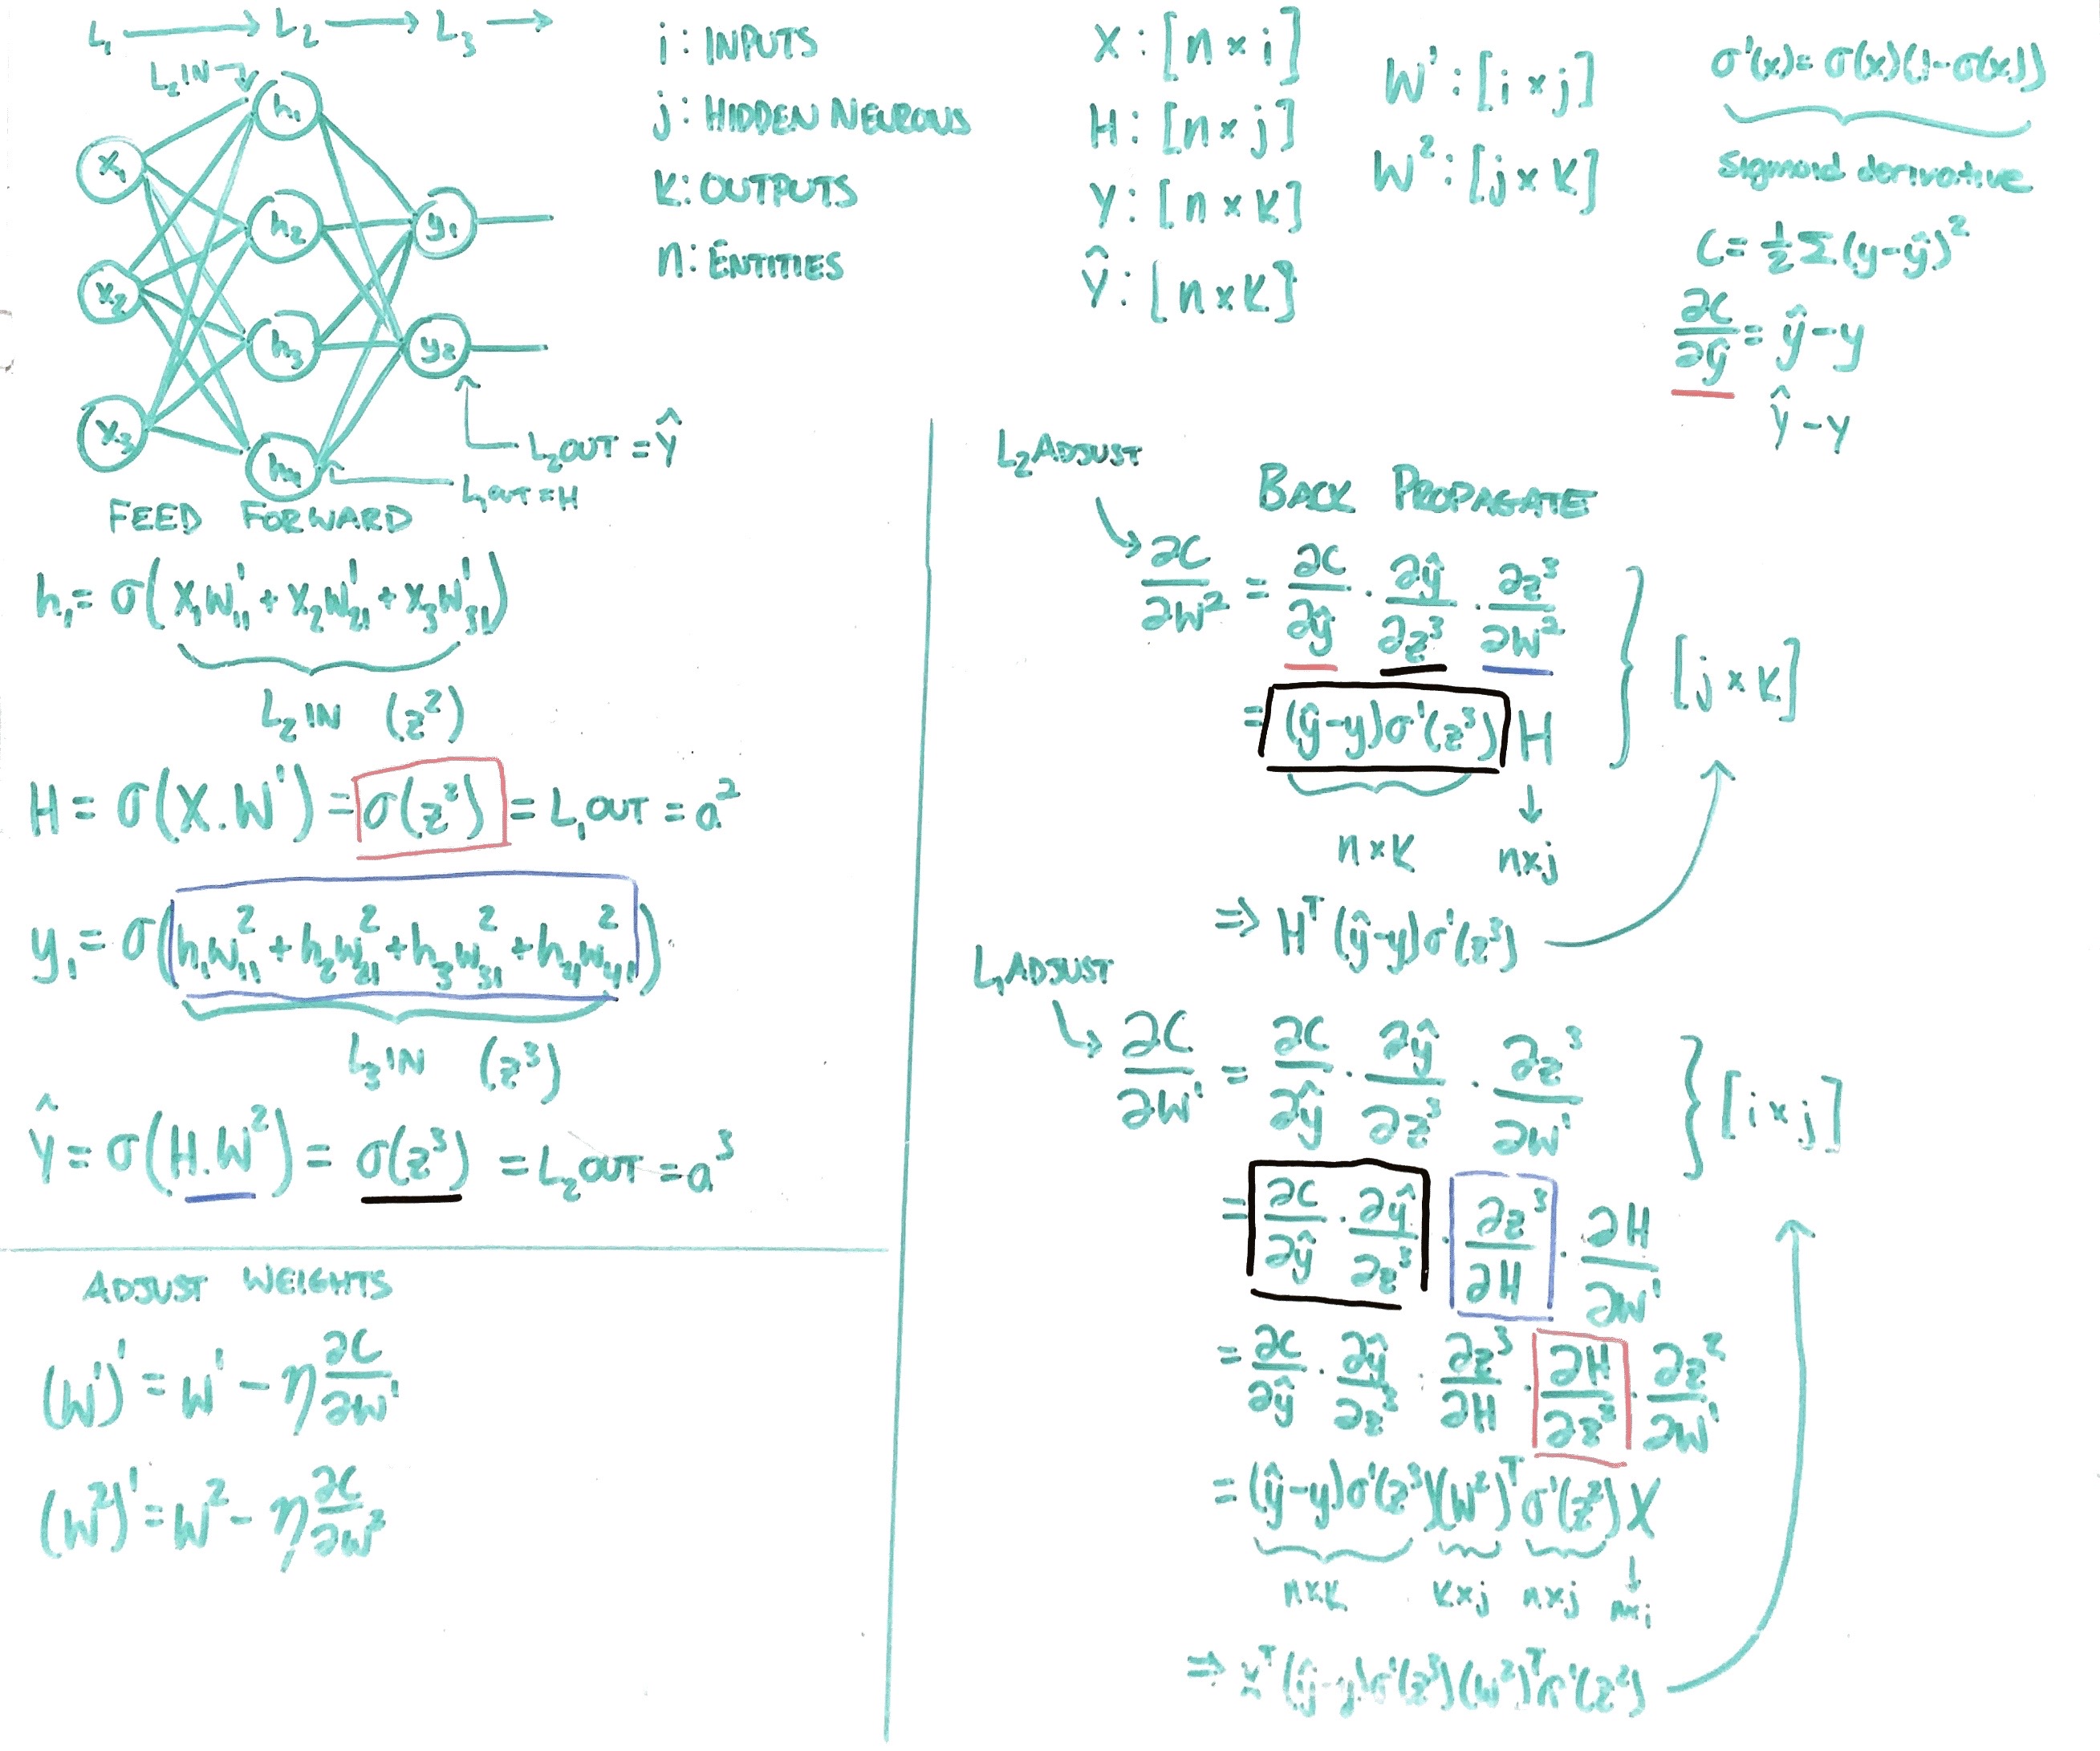 L₁ → L₂ → L₃ →
L₂ IN
h₁
x₁
h₂
y₁
x₂
h₃
y₂
x₃
h₄
L₂ OUT = Ŷ
L₁ OUT = H
i: INPUTS
j: HIDDEN NEURONS
K: OUTPUTS
n: ENTITIES
X: [n x i]
H: [n x j]
Y: [n x K]
Ŷ: [n x K]
W¹: [i x j]
W²: [j x K]
σ'(x) = σ(x)(1-σ(x))
Sigmoid derivative
C = ½ Σ (y-ŷ)²
∂C/∂ŷ = ŷ - y
Ŷ - Y
FEED FORWARD
h₁ = σ(x₁W¹₁₁ + x₂W¹₂₁ + x₃W¹₃₁)
L₂ IN (z²)
H = σ(X.W¹) = σ(z²) = L₁ OUT = a²
y₁ = σ(h₁W²₁₁ + h₂W²₂₁ + h₃W²₃₁ + h₄W²₄₁)
L₃ IN (z³)
Ŷ = σ(H.W²) = σ(z³) = L₂ OUT = a³
ADJUST WEIGHTS
(W¹)' = W¹ - η ∂C/∂W¹
(W²)' = W² - η ∂C/∂W²
L₂ ADJUST
BACK PROPAGATE
∂C/∂W² = ∂C/∂ŷ . ∂ŷ/∂z³ . ∂z³/∂W² } [j x K]
= (ŷ-y)σ'(z³) H
n x K n x j
⇒ Hᵀ(ŷ-y)σ'(z³)
L₁ ADJUST
∂C/∂W¹ = ∂C/∂ŷ . ∂ŷ/∂z³ . ∂z³/∂W¹ } [i x j]
= ∂C/∂ŷ . ∂ŷ/∂z³ . ∂z³/∂H . ∂H/∂W¹
= ∂C/∂ŷ . ∂ŷ/∂z³ . ∂z³/∂H . ∂H/∂z² . ∂z²/∂W¹
= (ŷ-y)σ'(z³)(W²)ᵀσ'(z²)X
n x K K x j n x j n x i
⇒ Xᵀ(ŷ-y)σ'(z³)(W²)ᵀσ'(z²)